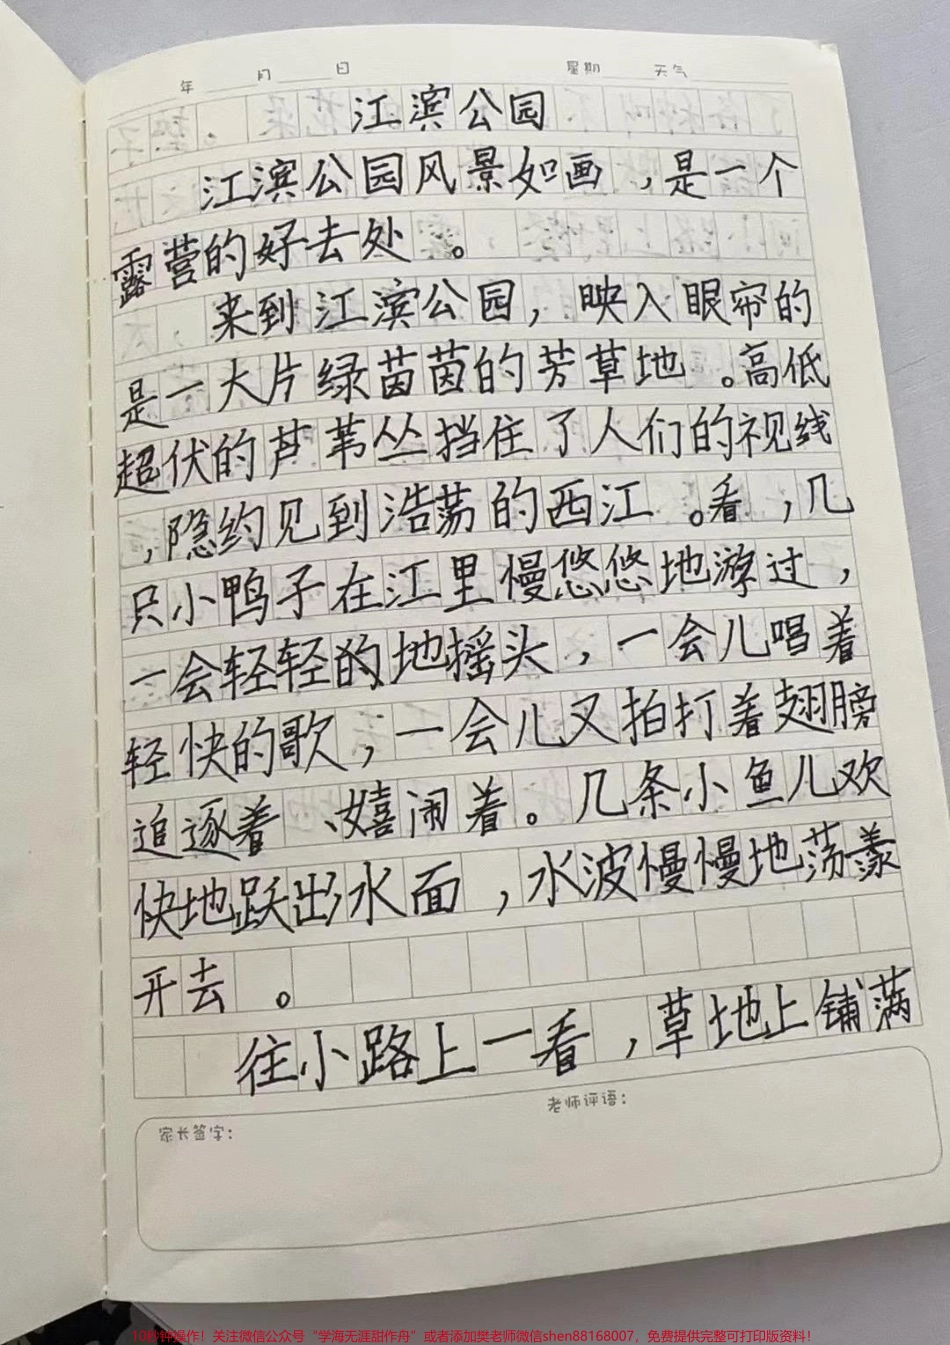 年 月 日 星期 天气
江滨公园
江滨公园风景如画，是一个
露营的好去处。
来到江滨公园，映入眼帘的
是一大片绿茵茵的芳草地。高低
超伏的芦苇丛挡住了人们的视线
，隐约见到浩荡的西江。看，几
只小鸭子在江里慢悠悠地游过，
一会轻轻的地摇头，一会儿唱着
轻快的歌，一会儿又拍打着翅膀
追逐着、嬉闹着。几条小鱼儿欢
快地跃出水面，水波慢慢地荡漾
开去。
往小路上一看，草地上铺满
老师评语：
家长签字：
10秒钟操作！关注微信公众号“学海无涯甜作舟”或者添加樊老师微信shen88168007，免费提供完整可打印版资料！